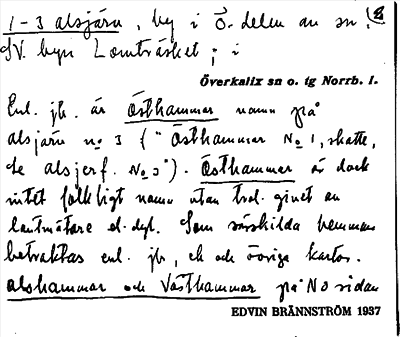 1-3 alsjärv, by i Ö. delen av sn. 2
SV. byn Lomträsket; i
Överkalix sn o. tg Norrb. l.
Enl. jb. är Östhammar namn på
alsjärv no 3 ("Östhammar No 1, skatte,
se alsjerf. No 3"). Östhammar är dock
intet folkligt namn utan trol. givet av
lantmätare el. dyl. Som särskilda hemman
betraktas enl. jb, ek och övriga kartor.
alshammar och Västhammar på NO sidan
EDVIN BRÄNNSTRÖM 1937